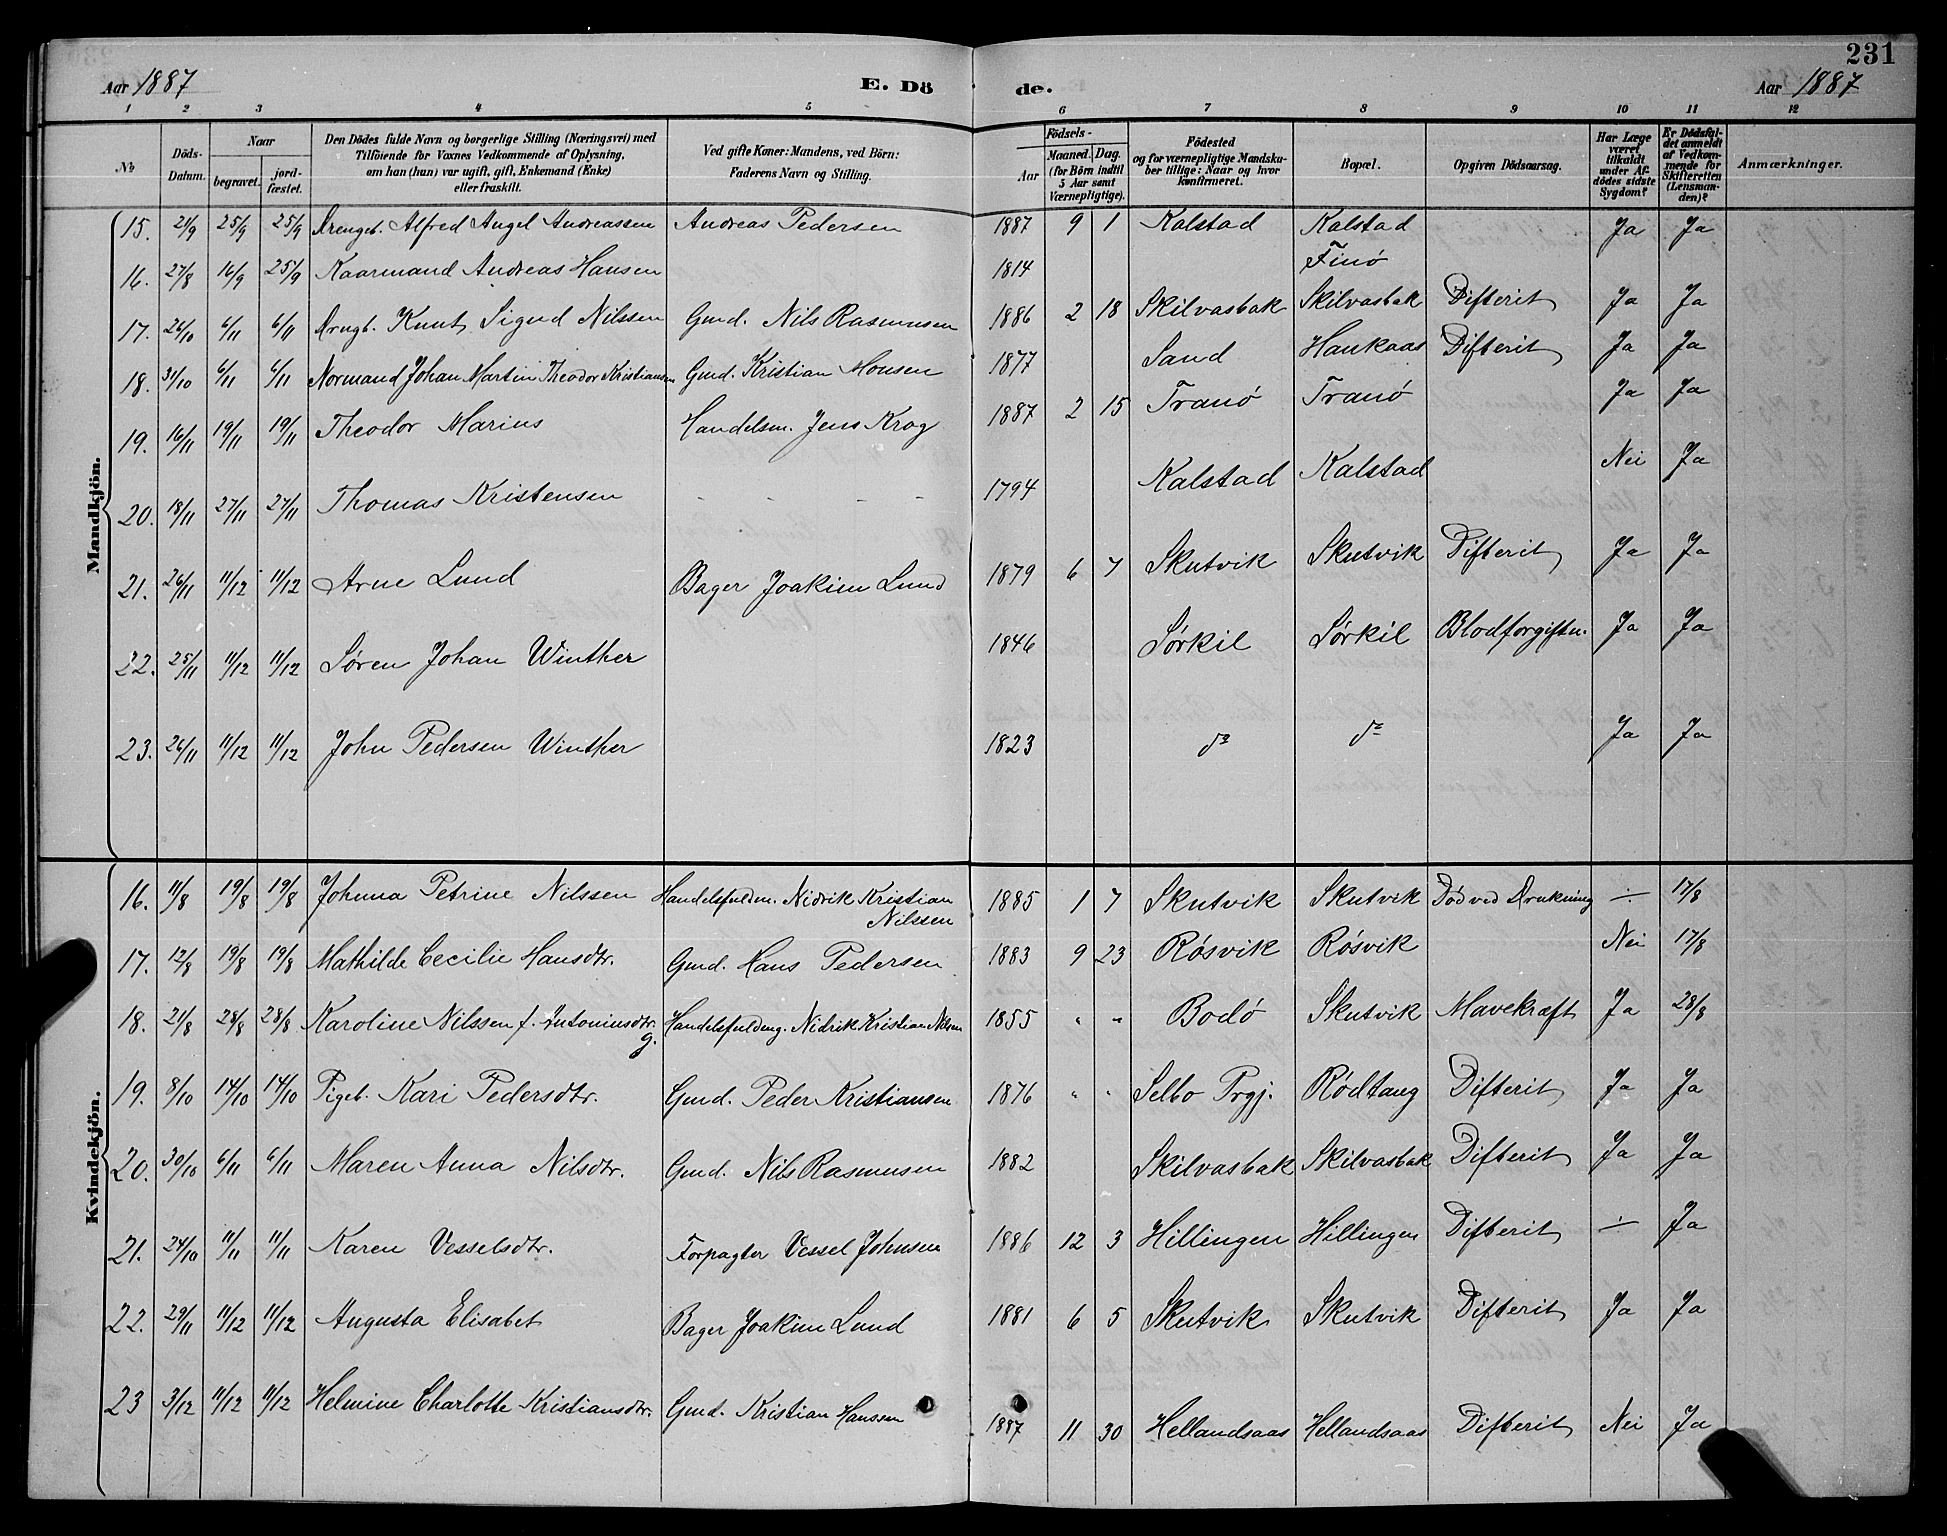 231
Aar 1887 E. Dö de. Aar 1887
1 2 3 4 5 6 7 8 9 10 11 12
No Döds-Datum. Naar begravet. jordfæstet. Den Dödes fulde Navn og borgerlige Stilling (Næringsvei) med Tilföiende for Voxnes Vedkommende af Oplysning, om han (hun) var ugift, gift, Enkemand (Enke) eller fraskilt. Ved gifte Koner: Mandens, ved Börn: Faderens Navn og Stilling. Födsels- Aar Maaned. Dag. (for Börn indtil 5 Aar samt Værnepligtige). Födested og for værnepligtige Mandskaber tillige: Naar og hvor konfirmeret. Bopæl. Opgiven Dödsaarsag. Har Læge været tilkaldt under Afdödes sidste Sygdom? Er Dödsfaldet anmeldt af Vedkommende for Skifteretten (Lensmanden)? Anmærkninger.
Mandkjön.
15. 21/9 25/9 25/9 Drengeb. Alfred Angel Andreassen Andreas Pedersen 1887 9 1 Kalstad Kalstad Ja Ja
16. 27/8 16/9 25/9 Kaarmand Andreas Hansen 1814 Finø
17. 26/10 6/11 6/11 Drngb. Knut Sigud Nilssen Gmd. Nils Rasmusen 1886 2 18 Skilvasbak Skilvasbak Difterit Ja Ja
18. 31/10 6/11 6/11 Normand Johan Martin Theodor Kristiansen Gmd. Kristian Monsen 1877 Sand Haukaas Difterit Ja Ja
19. 16/11 19/11 19/11 Theodor Marius Handelsm. Jens Krog 1887 2 15 Tranö Tranö Ja Ja
20. 18/11 27/11 27/11 Thomas Kristensen - - - - 1794 Kalstad Kalstad Nei Ja
21. 26/11 11/12 11/12 Arne Lund Bager Joakim Lund 1879 6 7 Skutvik Skutvik Difterit Ja Ja
22. 25/11 11/12 11/12 Søren Johan Winther 1846 Sørkil Sørkil Blodforgiftn. Ja Ja
23. 26/11 11/12 11/12 John Pedersen Winther 1823 do do Ja Ja
Kvindekjön.
16. 11/8 19/8 19/8 Johnna Petrine Nilssen Handelsfuldm. Nidrik Kristian Nilssen 1885 1 7 Skutvik Skutvik Død ved Drukning ÷ 17/8
17. 12/8 19/8 19/8 Mathilde Cecilie Hansdtr. Gmd. Hans Pedersen 1883 9 23 Røsvik Røsvik Nei 17/8
18. 21/8 28/8 28/8 Karoline Nilssen f. Antoniusdtr. g. Handelsfuldmg. Nidrik Kristian Nilsen 1855 " " Bodø Skutvik Mavekræft Ja 28/8
19. 8/10 14/10 14/10 Pigeb. Kari Pedersdtr. Gmd. Peder Kristiansen 1876 " " Selbo Prgj. Rødtang Difterit Ja Ja
20. 30/10 6/11 6/11 Maren Anna Nilsdtr. Gmd. Nils Rasmusen 1882 Skilvasbak Skilvasbak Difterit Ja Ja
21. 24/10 11/11 11/11 Karen Vesselsdtr. Forpagter Vessel Johnsen 1886 12 3 Hillingen Hillingen Difterit ÷ Ja
22. 29/11 11/12 11/12 Augusta Elisabet Bager Joakim Lund 1881 6 5 Skutvik Skutvik Difterit Ja Ja
23 3/12 11/12 11/12 Helmine Charlotte Kristiansdtr. Gmd. Kristian Hanssen 1887 11 30 Hellandsaas Hellandsaas Difterit Nei Ja